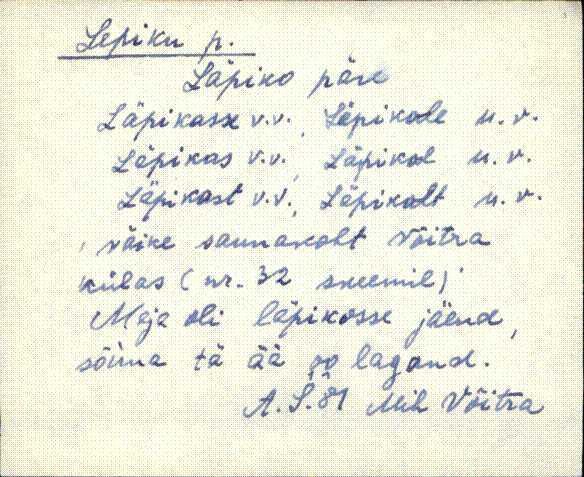 Lepiku p.
Läpiko päre
Läpikasse v.v., Läpikole u. v.
Läpikas v.v., Läpikol u. v.
Läpikast v.v., Läpikolt u. v.
, väike saunakoht Võitra
külas (nr. 32 skeemil)'
Maja oli läpikosse jäend,
sõima tä ää po lagand.
A. S. 81 Mih Võitra